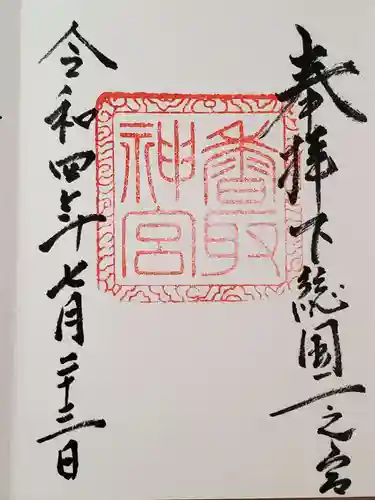 奉拝下総国一之宮
香取
神宮
令和四年七月二十三日